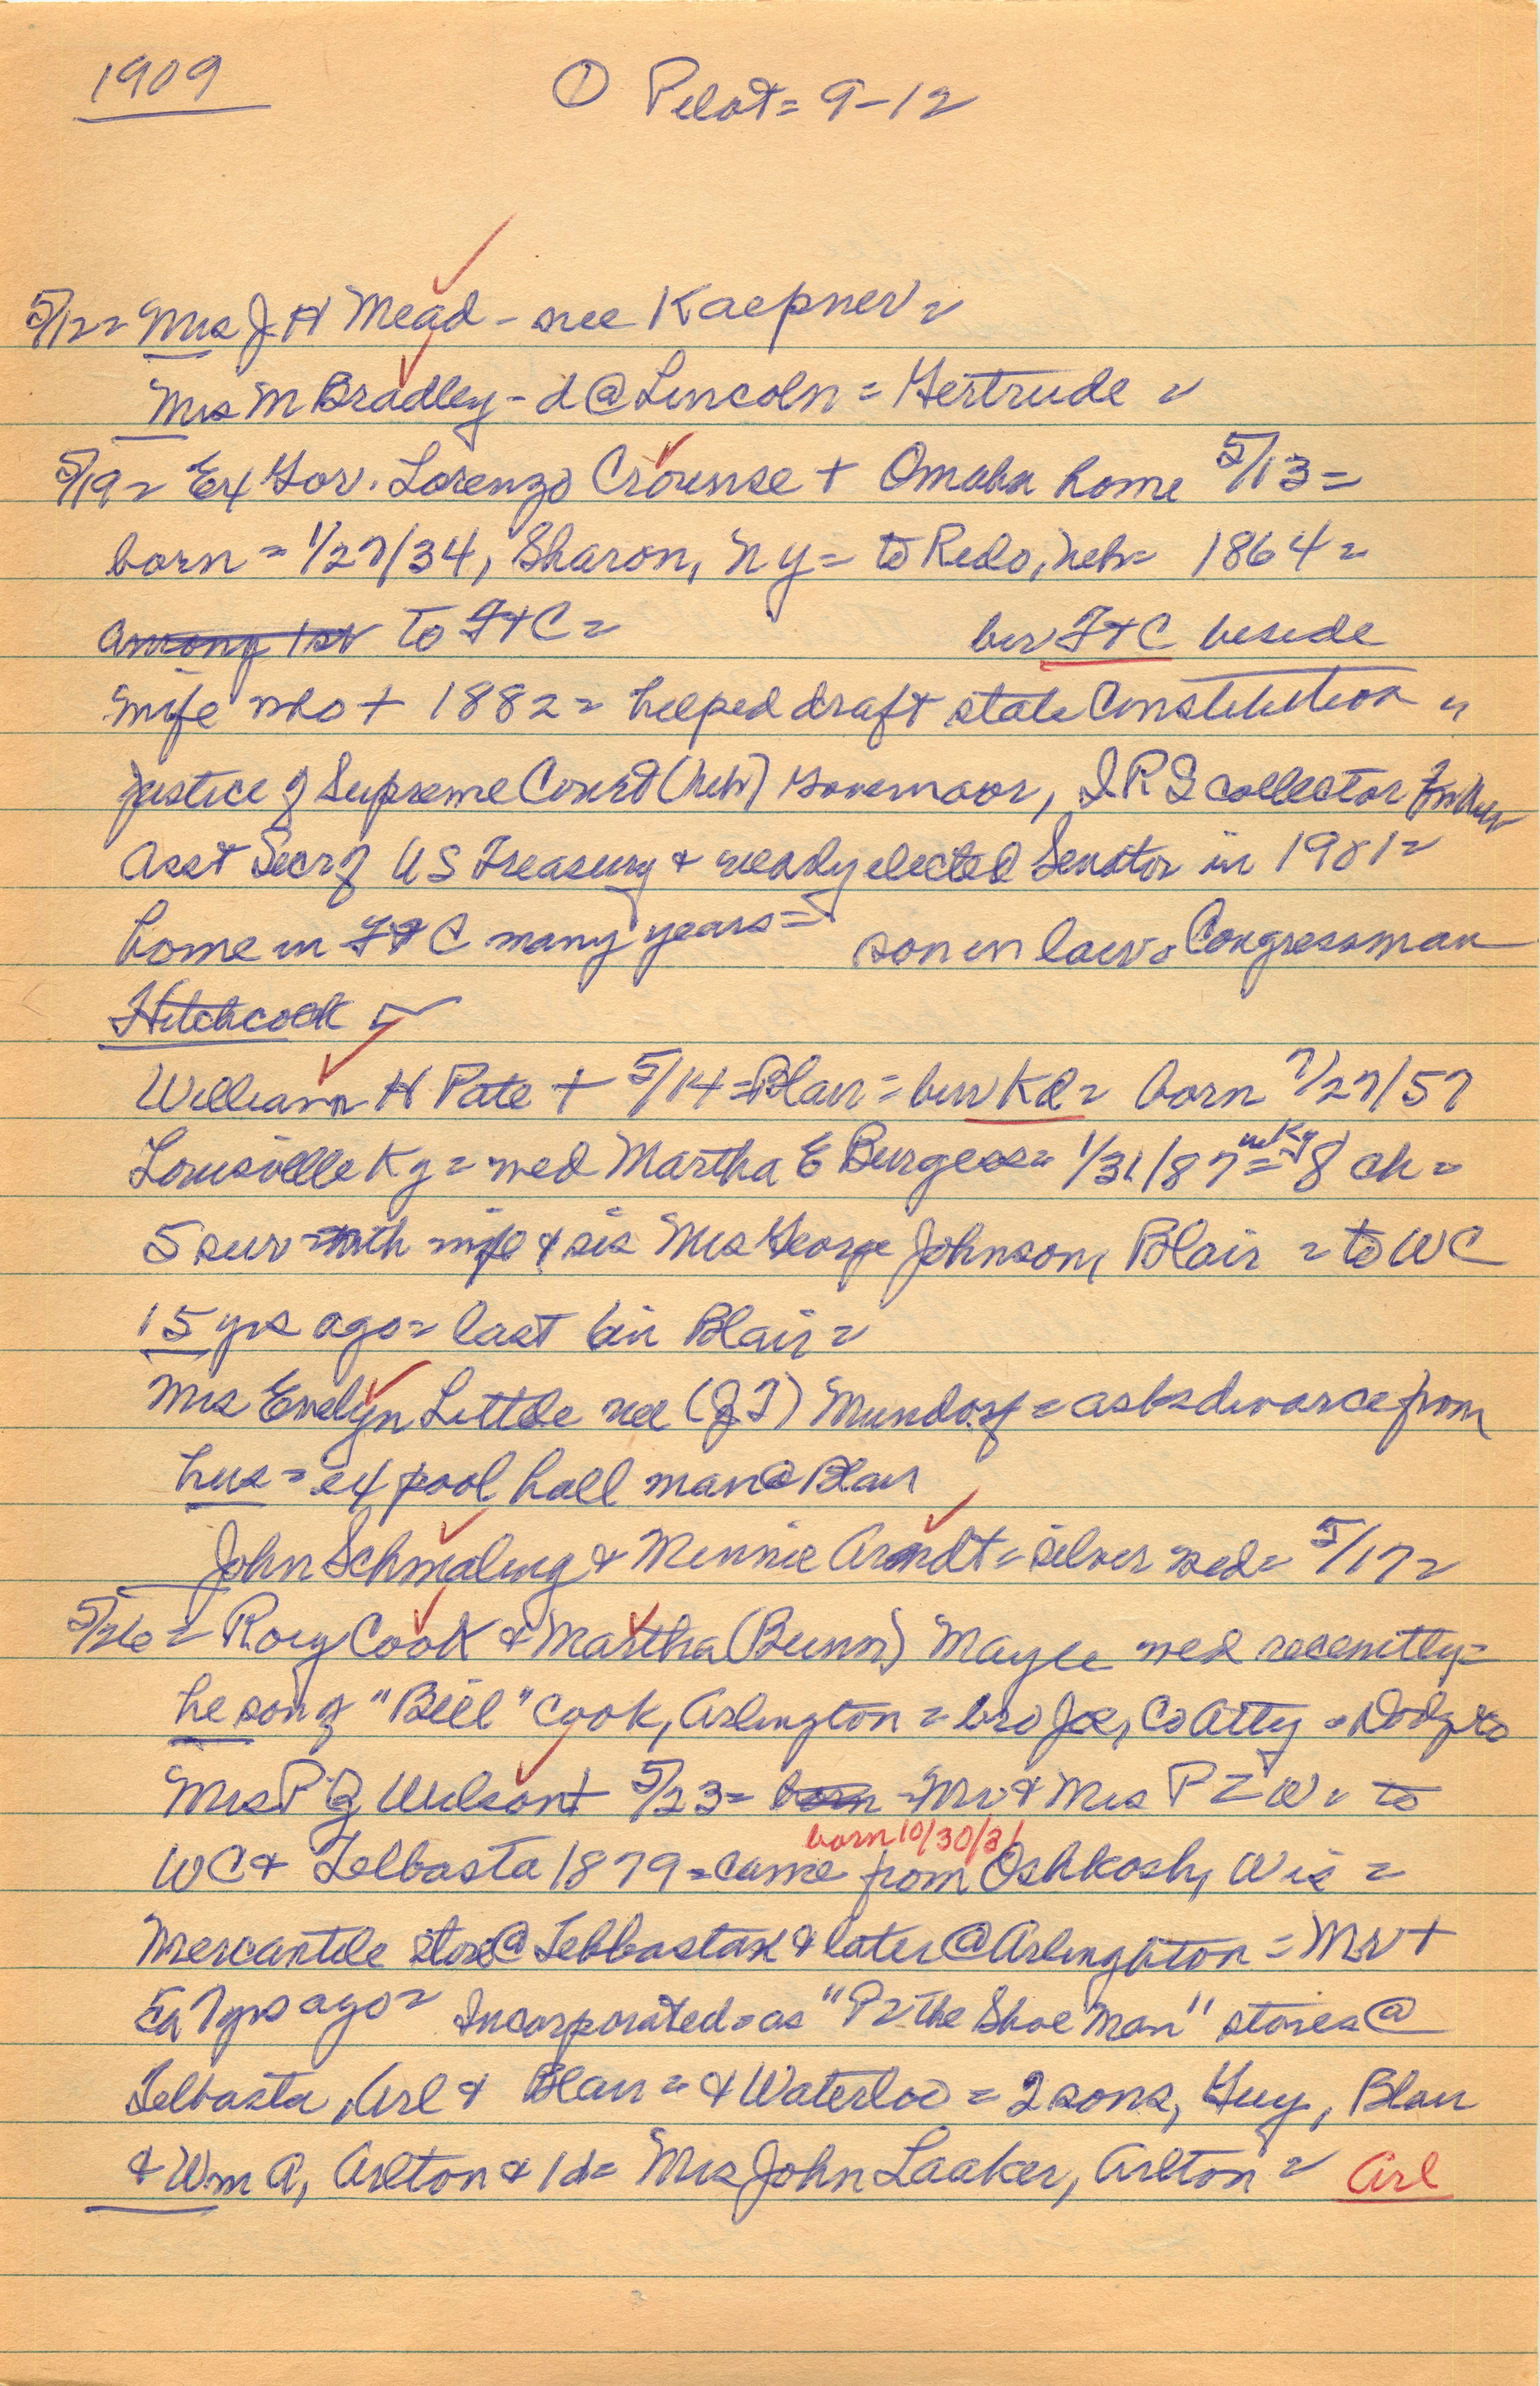 1909
① Pilot = 9-12
5/12 = Mrs J H Mead - nee Kaepner =
Mrs M Bradley - d @ Lincoln = Gertrude =
5/19 = Ex Gov. Lorenzo Crounse + Omaha home 5/13 =
born = 1/27/34, Sharon, NY = to Neb = 1864 =
among 1st to FtC = bur FtC beside
wife who + 1882 = helped draft state Constitution =
justice of Supreme Court (Neb) Governaor, collector
Asst Secr of US Treasury & nearly elected Senator in 1901 =
home in FtC many years = son in law = Congressman
Hitchcock =
William H Pate + 5/14 = Blair = bur Kd = born 7/27/57
Louisville Ky = wed Martha E Burgess = 1/31/87 = in Ky 8 ch =
5 sur = with wife & sis Mrs George Johnson, Blair = to WC
15 yrs ago = last 6 in Blair =
Mrs Evelyn Little nee (J T) Mundorf = asks divorce from
hus = ex pool hall man @ Blair
John Schmaling & Minnie Arndt = silver wed = 5/17 =
5/26 = Roy Cook & Martha (Bunn) wed recently =
he son of "Bill" Cook, Arlington = bro Joe, Co Atty =
Mrs P Z Wilson + 5/23 = born = Mr & Mrs P Z W = to
born 10/30/31
WC & Telbasta 1879 = came from Oshkosh, Wis =
Mercantile store @ Telbasta & later @ Arlington = Mr +
7 yrs ago = Incorporated = as "PZ the Shoe Man" stores @
Telbasta, Arl & Blair = & Waterloo = 2 sons, Guy, Blair
& Wm A, Arlton & 1 d = Mrs John Laaker, Arlton = Arl